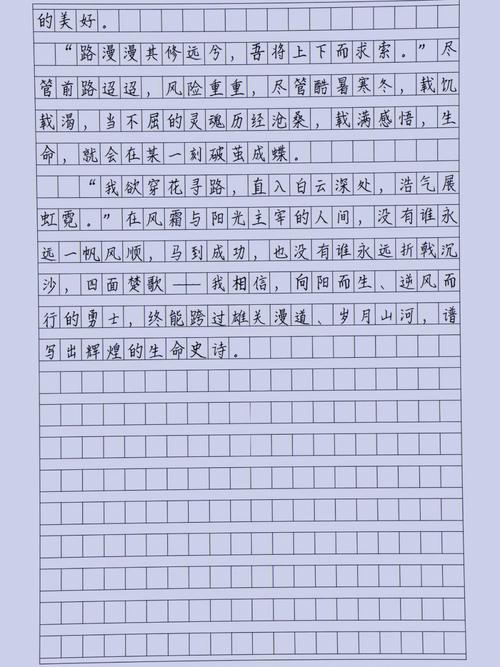 的美好。
“路漫漫其修远兮，吾将上下而求索。”尽
管前路迢迢，风险重重，尽管酷暑寒冬，载饥
载渴，当不屈的灵魂历经沧桑，载满感悟，生
命，就会在某一刻破茧成蝶。
“我欲穿花寻路，直入白云深处，浩气展
虹霓。”在风霜与阳光主宰的人间，没有谁永
远一帆风顺，马到成功，也没有谁永远折戟沉
沙，四面楚歌——我相信，向阳而生、逆风而
行的勇士，终能跨过雄关漫道、岁月山河，谱
写出辉煌的生命史诗。